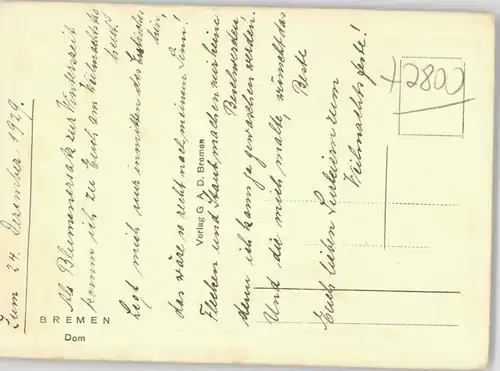 Zum 24. Dezember 1929.
Als Blumenersatz zur Winterszeit
komm ich zu Euch am Weihnachtsba
Legt mich nur inmitten des Tisches
hin,
das wäre so recht nach meinem Sinn!
Flecken und Staub machen mir keine
Beschwerden
denn ich kann ja gewaschen werden!
Und die mich malte, wünscht das
Beste
Euch lieben zum
Weihnachtsfeste!
Verlag G. A. D. Bremen
BREMEN
Dom
2800